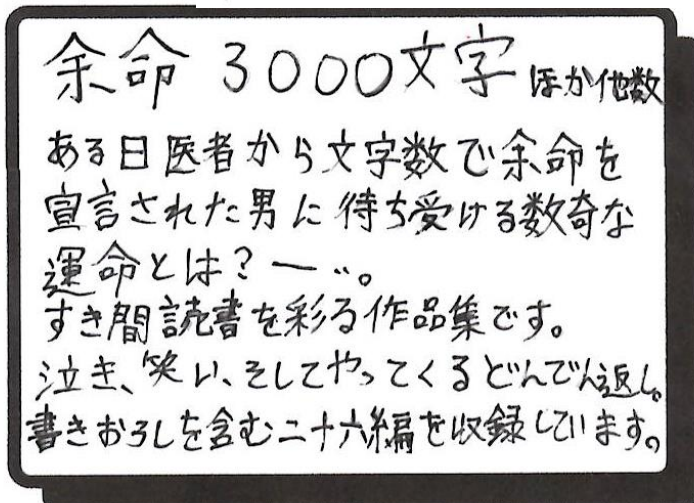 余命 3000文字 ほか他数
ある日医者から文字数で余命を
宣言された男に待ち受ける数奇な
運命とは？ー…。
すき間読書を彩る作品集です。
泣き、笑い、そしてやってくるどんでん返し。
書きおろしを含む二十六編を収録しています。